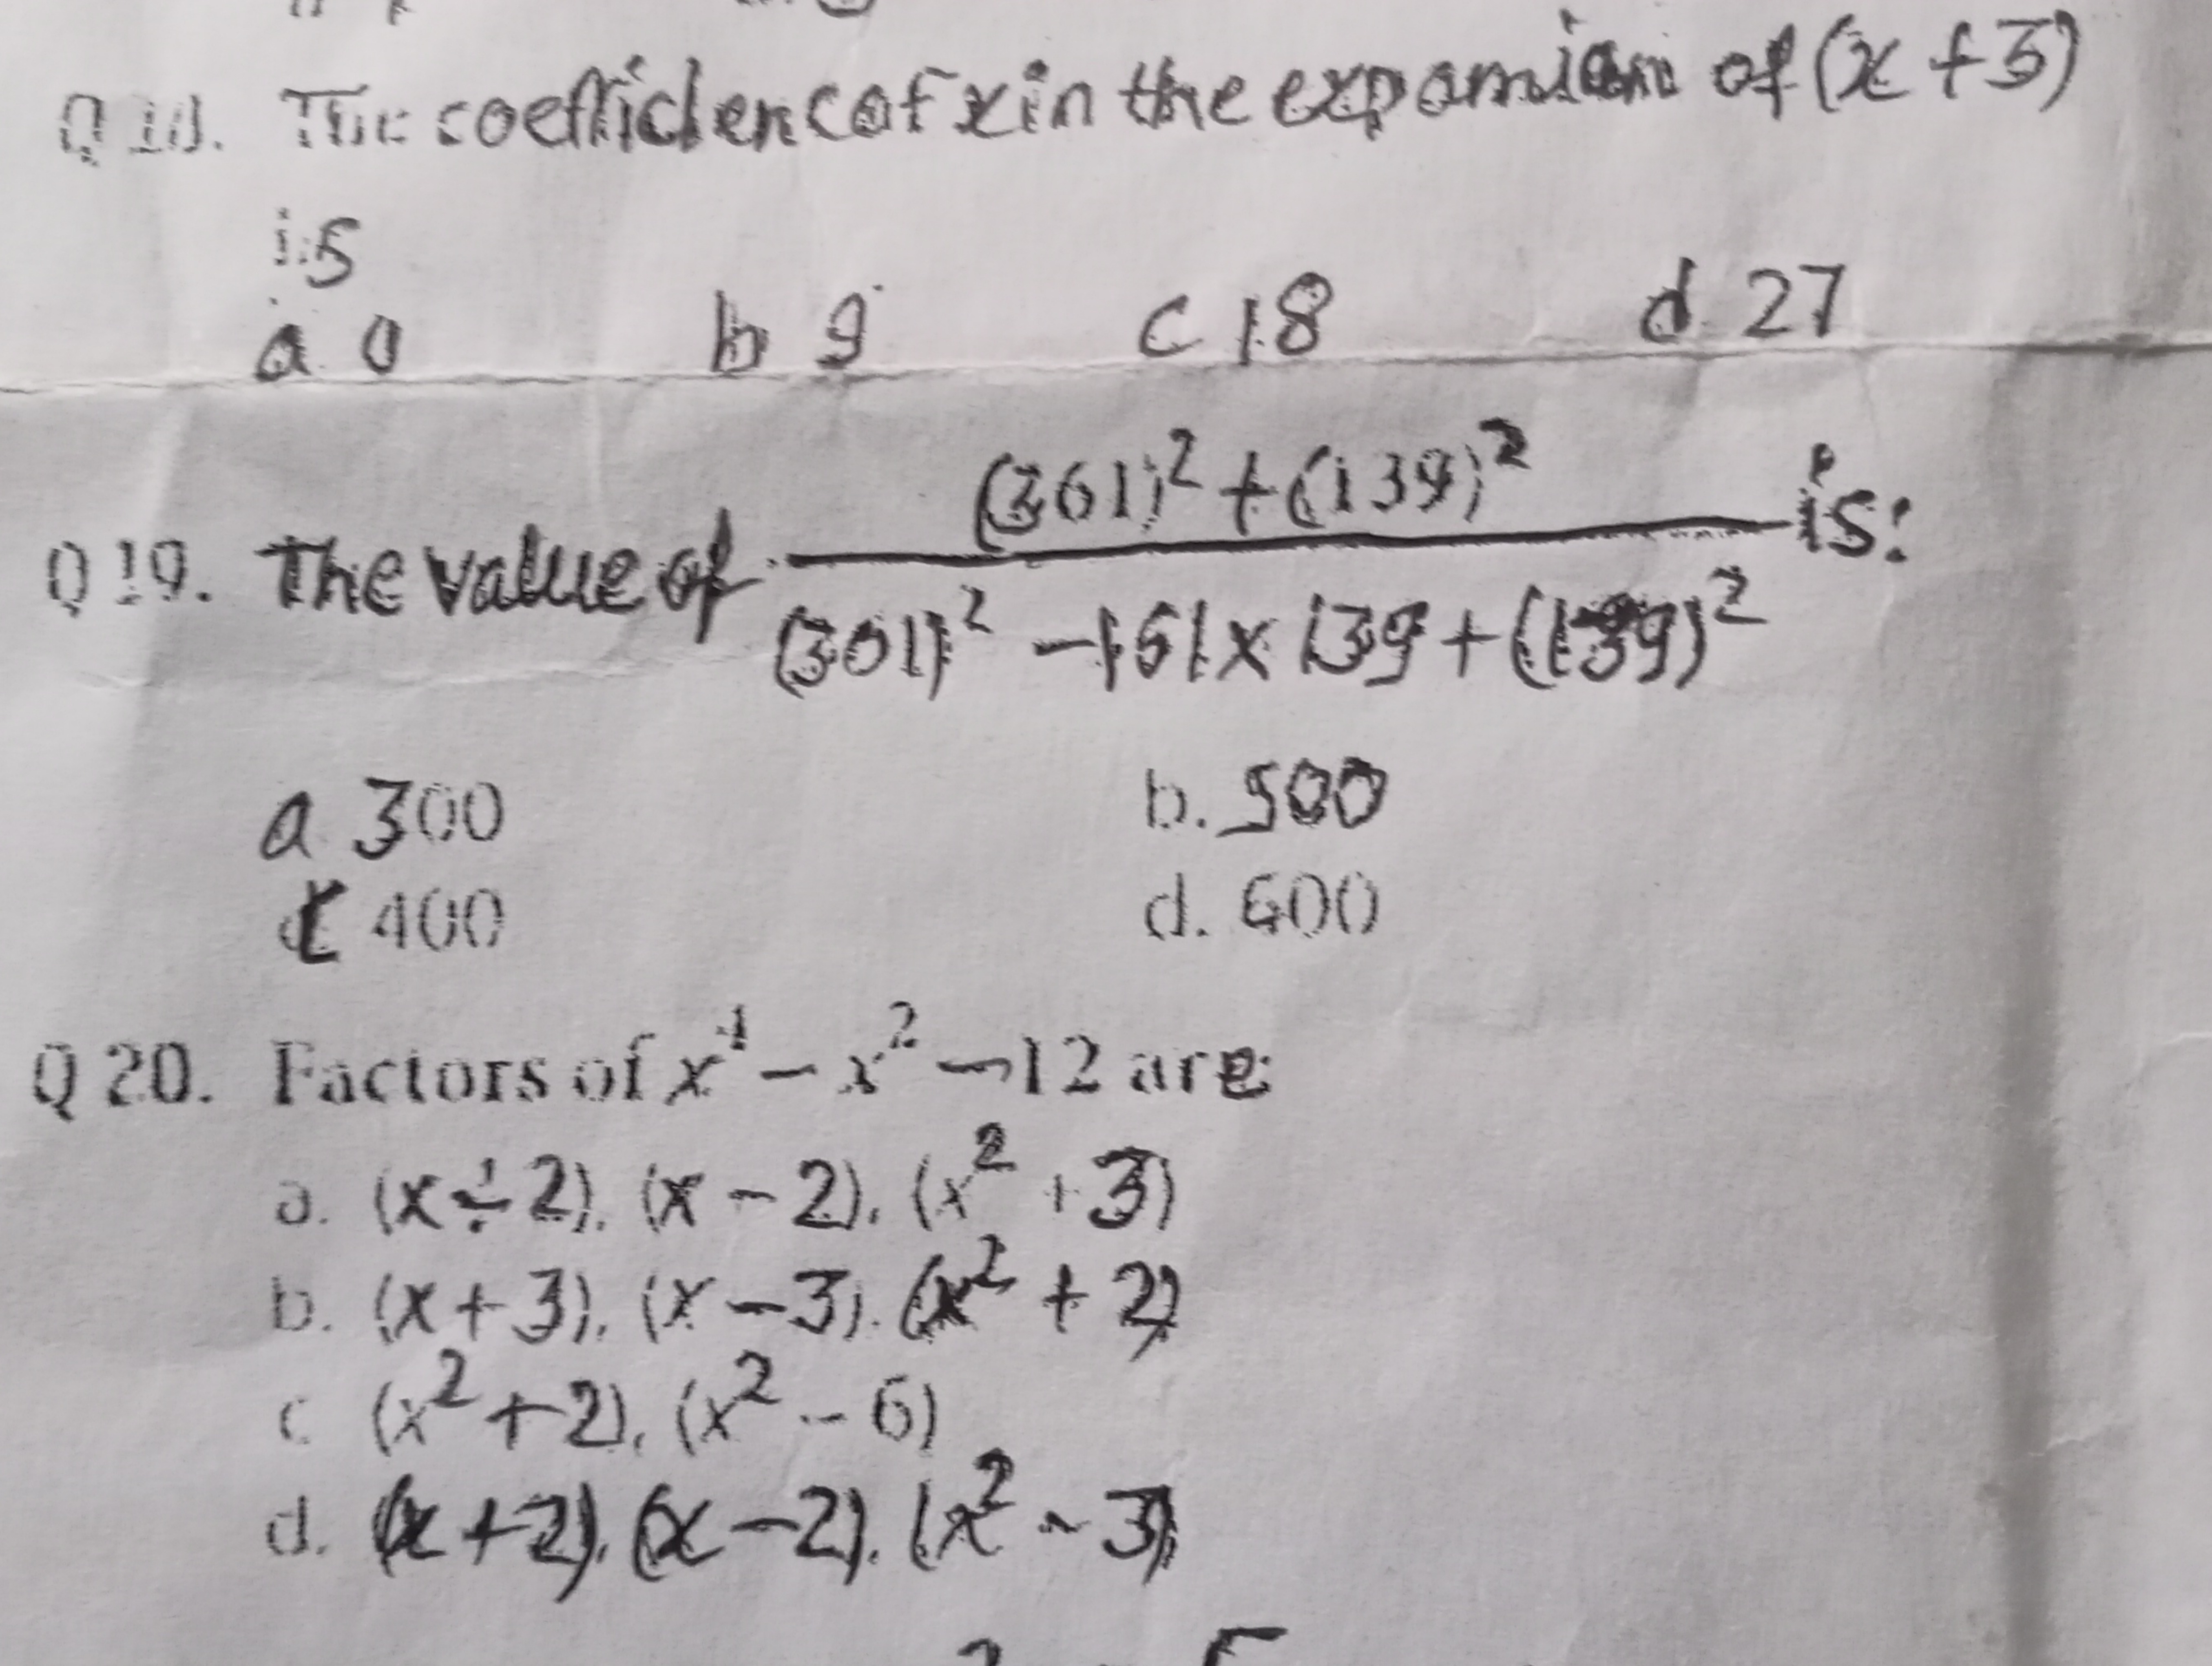 Q 18. The coefficiencof x in the expansion of (x + 3)
is
a. 0 b 9 c 18 d. 27
Q 19. The value of (361)² + (139)² / (361)² – 161 x 139 + (139)² is:
a 300 b. 500
c 400 d. 600
Q 20. Factors of x⁴ – x² – 12 are:
a. (x ÷ 2), (x – 2), (x² + 3)
b. (x + 3), (x – 3), (x² + 2)
c (x² + 2), (x² – 6)
d. (x + 2), (x – 2), (x² – 3)